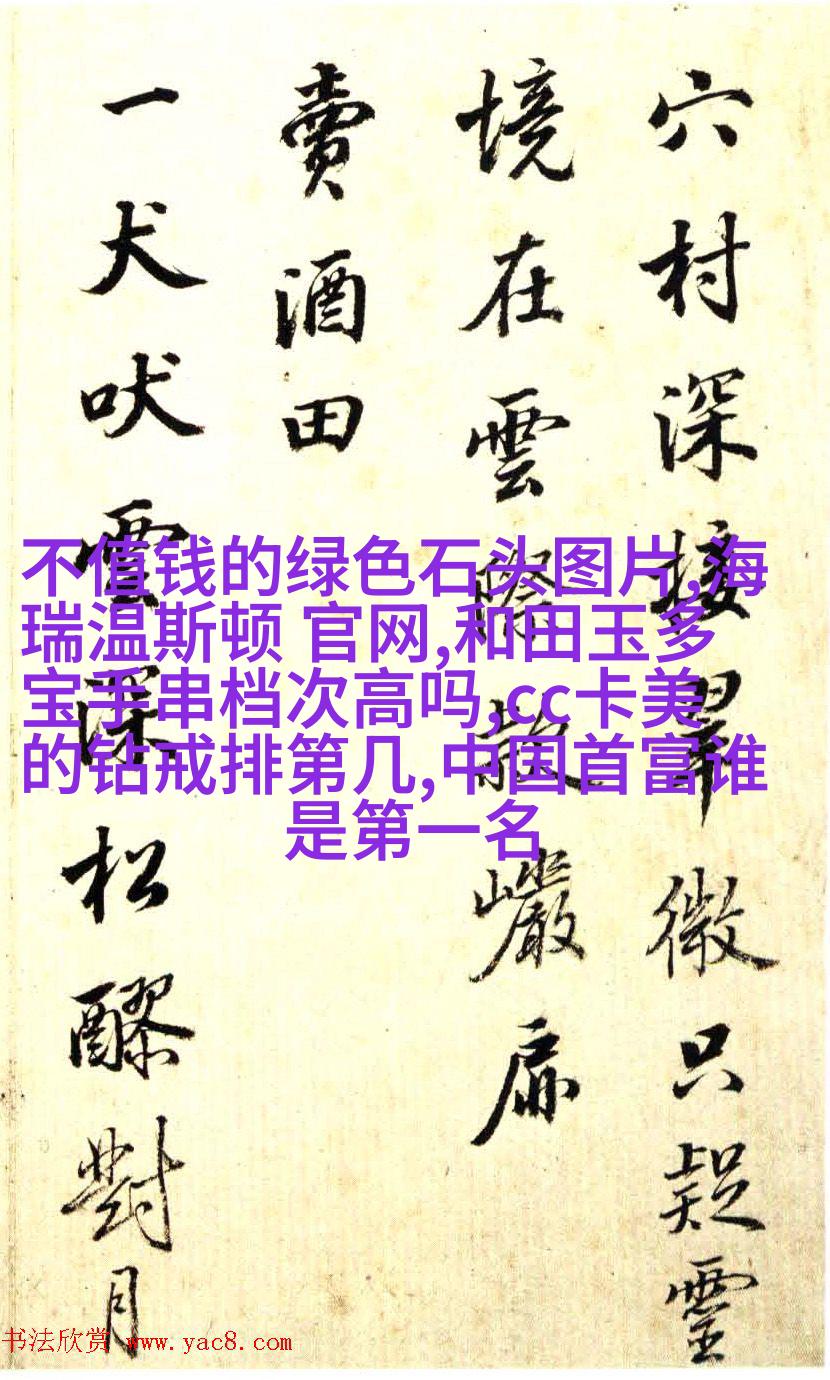 穴村深接翠微只疑靈
境在雲際敞巖扉
賣酒田
一犬吠雲深松醪對月
不值钱的绿色石头图片,海
瑞温斯顿 官网,和田玉多
宝手串档次高吗,cc卡美
的钻戒排第几,中国首富谁
是第一名
书法欣赏 www.yac8.com